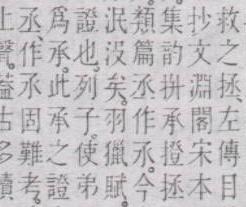 救之拯左傳目
抄文淵閣宋本
集韵拼承撜拯
類篇丞作氶今
泯沒矣羽獵賦
證也列子使弟
爲承此承之證
丞作承固難考
上聲益古多讀